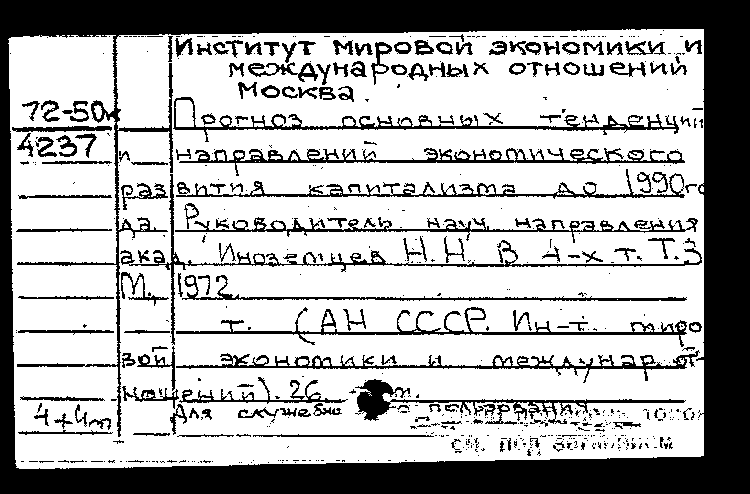 Институт мировой экономики и
международных отношений
Москва.
72-50к
Прогноз основных тенденций
4237
и направлений экономического
развития капитализма до 1990го
да. Руководитель науч. направления
акад. Иноземцев Н.Н. В 4-х т. Т.3
М., 1972.
т. (АН СССР. Ин-т. миро
вой экономики и междунар. от-
ношений). 26. т.
4+4п
Для служебно пользования
см. под заглавием